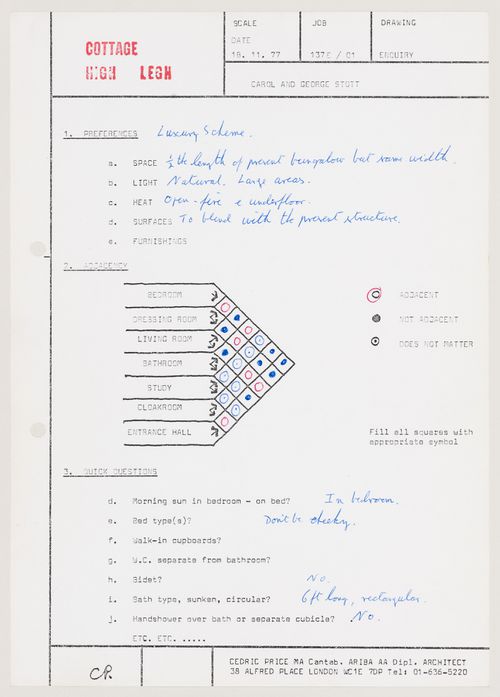 COTTAGE
HIGH LEGH
SCALE
JOB
DRAWING
DATE
18. 11. 77
137E / 01
ENQUIRY
CAROL AND GEORGE STOTT
1. PREFERENCES Luxury Scheme.
a. SPACE ½ the length of present bungalow but same width.
b. LIGHT Natural. Large areas.
c. HEAT Open-fire & underfloor.
d. SURFACES To blend with the present structure.
e. FURNISHINGS
2. ADJACENCY
BEDROOM
DRESSING ROOM
LIVING ROOM
BATHROOM
STUDY
CLOAKROOM
ENTRANCE HALL
ADJACENT
NOT ADJACENT
DOES NOT MATTER
Fill all squares with
appropriate symbol
3. QUICK QUESTIONS
d. Morning sun in bedroom - on bed? In bedroom.
e. Bed type(s)? Don't be cheeky.
f. Walk-in cupboards?
g. W.C. separate from bathroom?
h. Bidet? No.
i. Bath type, sunken, circular? 6ft long, rectangular.
j. Handshower over bath or separate cubicle? No.
ETC. ETC. .....
CP.
CEDRIC PRICE MA Cantab. ARIBA AA Dipl. ARCHITECT
38 ALFRED PLACE LONDON WC1E 7DP Tel: 01-636-5220